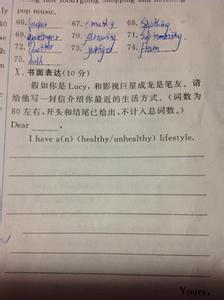 pop music.
66.
67.
68.
69.
70. drawing
71. swimming
72. better
73.
74. from
75. both
X. 书面表达(10分)
假如你是 Lucy,和影视巨星成龙是笔友。请
给他写一封信介绍你最近的生活方式。(词数为
80 左右,开头和结尾已给出,不计入总词数。)
Dear ______,
I have a(n) (healthy/unhealthy) lifestyle.
Yours,